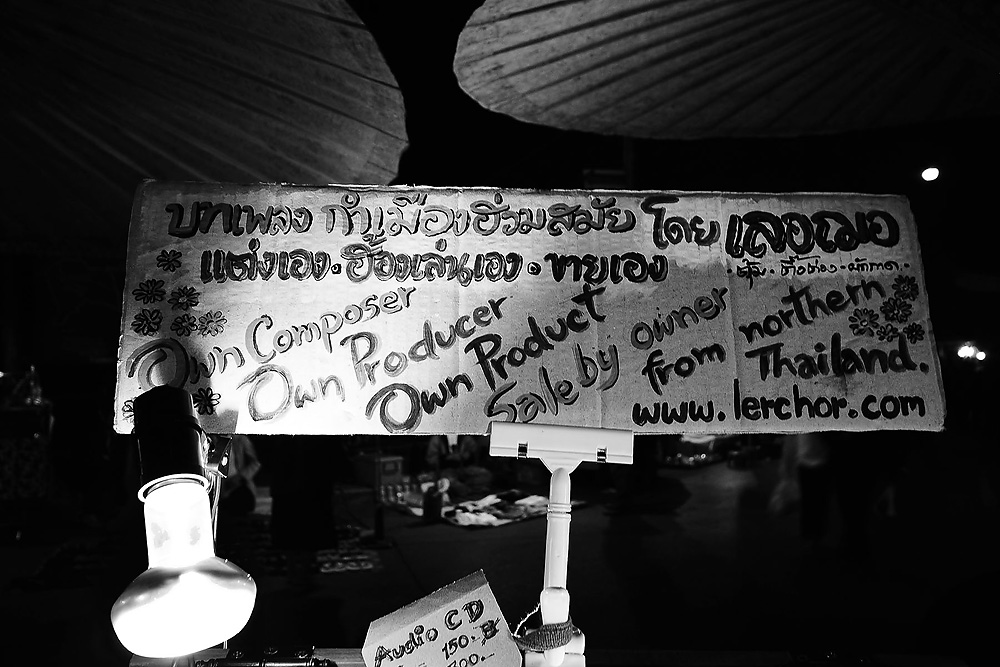 บทเพลง กำเมืองฮ่วมสมัย โดย เลอฌอ
แต่งเอง · ฮ้องเล่นเอง · ขายเอง
Own Composer
Own Producer
Own Product
Sale by owner
from northern
Thailand.
www.lerchor.com
Audio CD
150.-฿